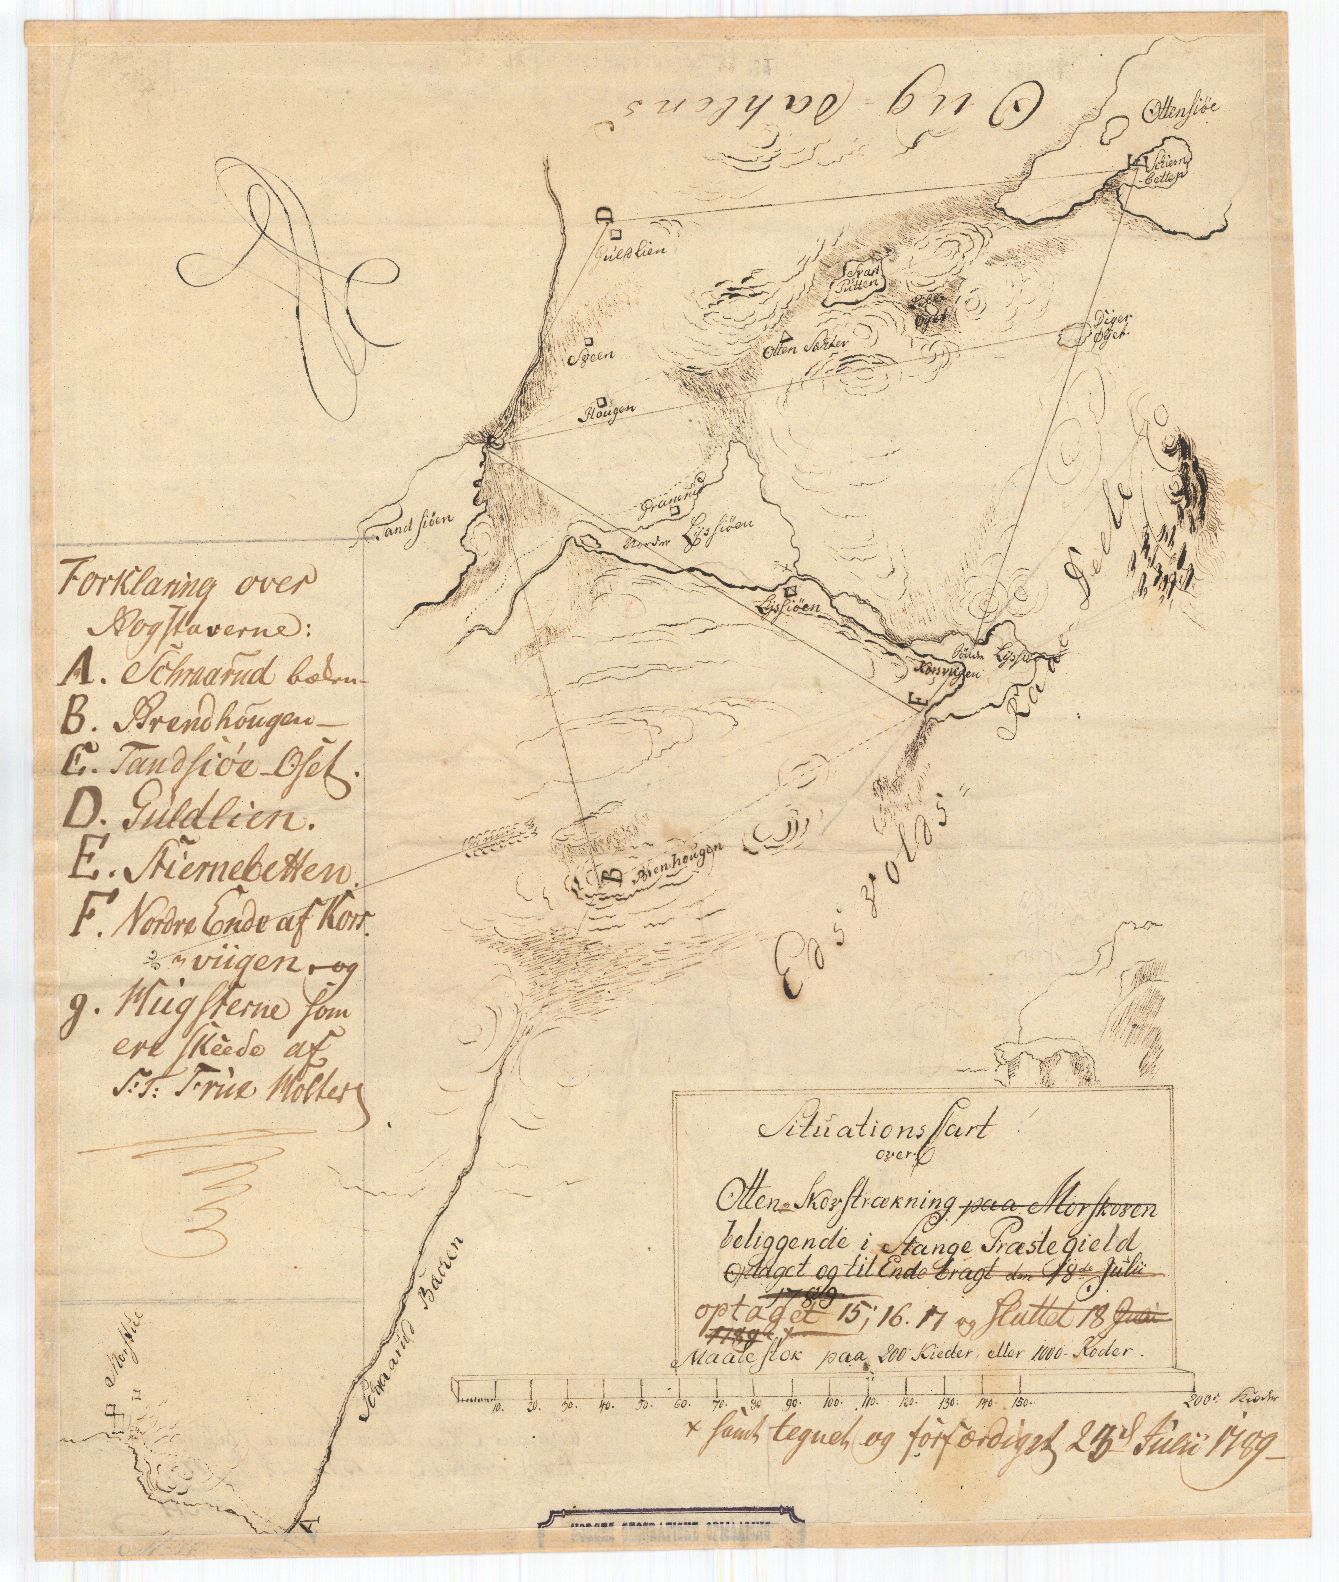 Oug-dahlens
Ottensiöe
Stiern-
betten
E
D
Guldlien
Svart
Putten
Diger
Øyet
Otten Sæter
Sveen
Hougen
Tandsiöen
Gramrud
Nordre Lyssiöen
Lyssiöen
Søndre Lyssiö
Korsviigen
F
Feelle
Eds volds"
B
Brenhougen
Schraarud Bækken
A
Forklaring over
Bogstaverne:
A. Schraarud bækn-
B. Brendhougen-
C. Tandsiöe-Oset.
D. Guldlien.
E. Stiernebetten.
F. Nordre Ende af Kors-
viigen, og
g. Huigsterne som
ere skeede af
S:T: Frue Wolter
Situations Cart
over
Otten-Skovstrækning paa Morskoven
beliggende i Stange Præstegield
optaget og til Ende bragt den 18de Julii
1789
optaget 15, 16. 17 og sluttet 18 Julii
1789. x
Maalestok paa 200 Kieder, eller 1000 Roder.
10. 20. 30. 40. 50. 60. 70. 80. 90. 100. 110. 120. 130. 140. 150. 200de Kieder
x samt tegnet og forfærdiget 23d Julii 1789-
NORGES GEOGRAFISKE OPMAALING